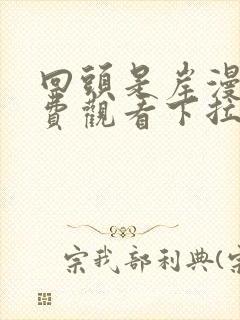 回頭是岸漫
費觀看下拉
宗我部利典(宗